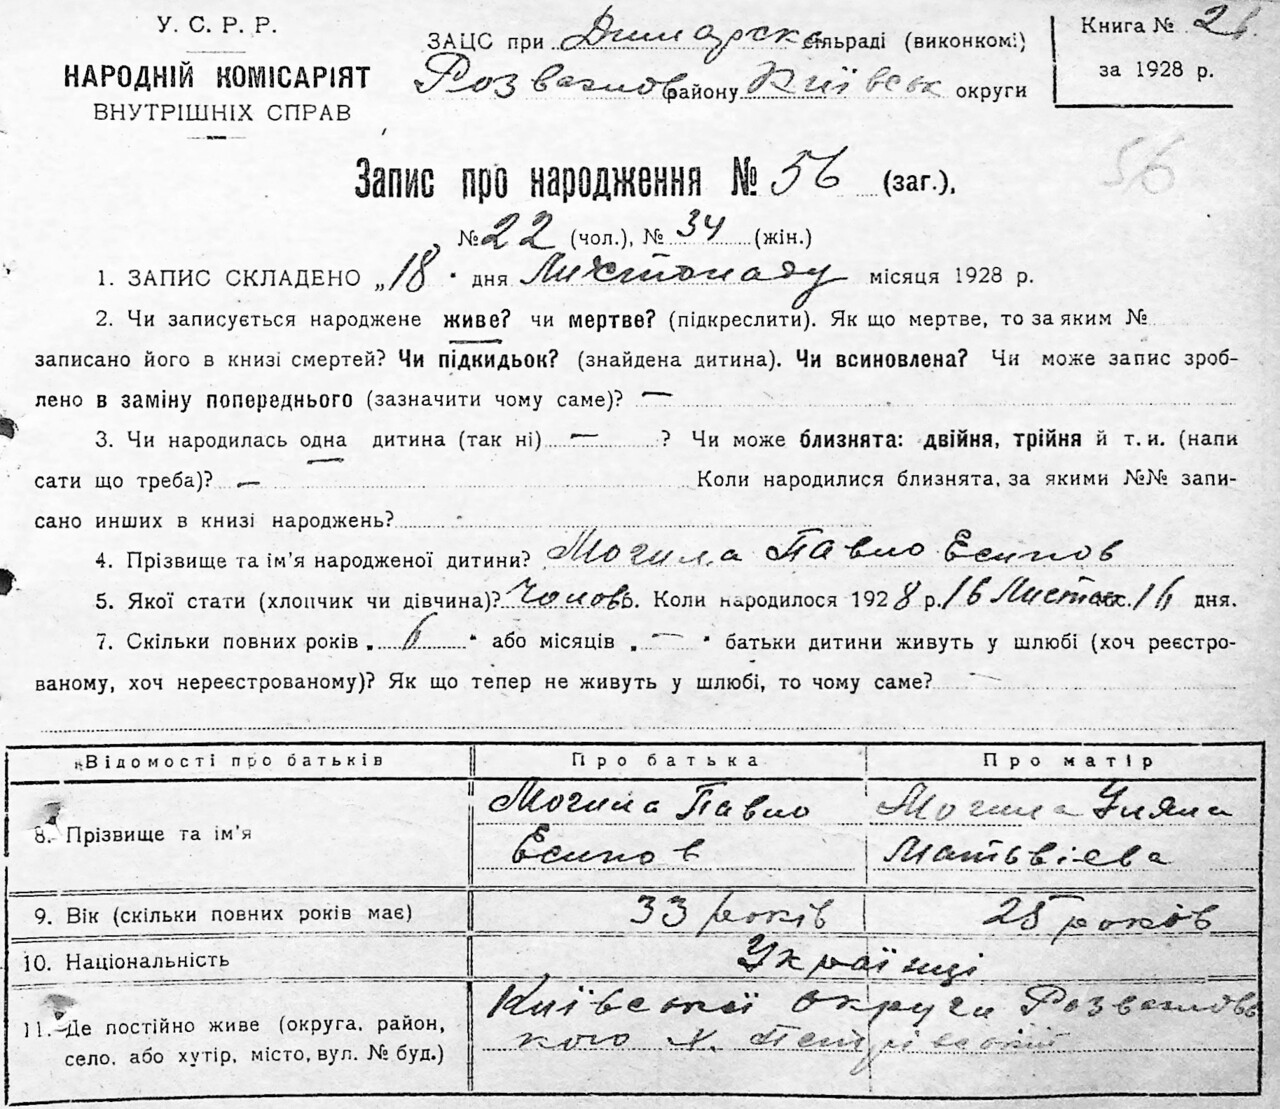 У. С. Р. Р.
НАРОДНІЙ КОМІСАРІЯТ
ВНУТРІШНІХ СПРАВ
ЗАЦС при Димарск сільраді (виконкомі)
Розважов району Київськ округи
Книга № 26.
за 1928 р.
56
Запис про народження № 56 (заг.),
№ 22 (чол.), № 34 (жін.)
1. ЗАПИС СКЛАДЕНО „18" дня Лихстопаду місяця 1928 р.
2. Чи записується народжене живе? чи мертве? (підкреслити). Як що мертве, то за яким №
записано його в книзі смертей? Чи підкидьок? (знайдена дитина). Чи всиновлена? Чи може запис зроб-
лено в заміну попереднього (зазначити чому саме)? —
3. Чи народилась одна дитина (так ні) — ? Чи може близнята: двійня, трійня й т. и. (напи
сати що треба)? — Коли народилися близнята, за якими №№ запи-
сано инших в книзі народжень?
4. Прізвище та ім'я народженої дитини? Могила Павло Есипов
5. Якої стати (хлопчик чи дівчина)? Чолов. Коли народилося 1928 р. 16 Листоп. 16 дня.
7. Скільки повних років „ 6 " або місяців „ — " батьки дитини живуть у шлюбі (хоч реєстро-
ваному, хоч нереєстрованому)? Як що тепер не живуть у шлюбі, то чому саме?
Відомості про батьків Про батька Про матір
8. Прізвище та ім'я Могила Павло Есипов Могила Уляна Матьвієва
9. Вік (скільки повних років має) 33 років 25 років
10. Національність Українці
11. Де постійно живе (округа, район, село, або хутір, місто, вул. № буд.) Київської округи Розважовського х. Петрівский